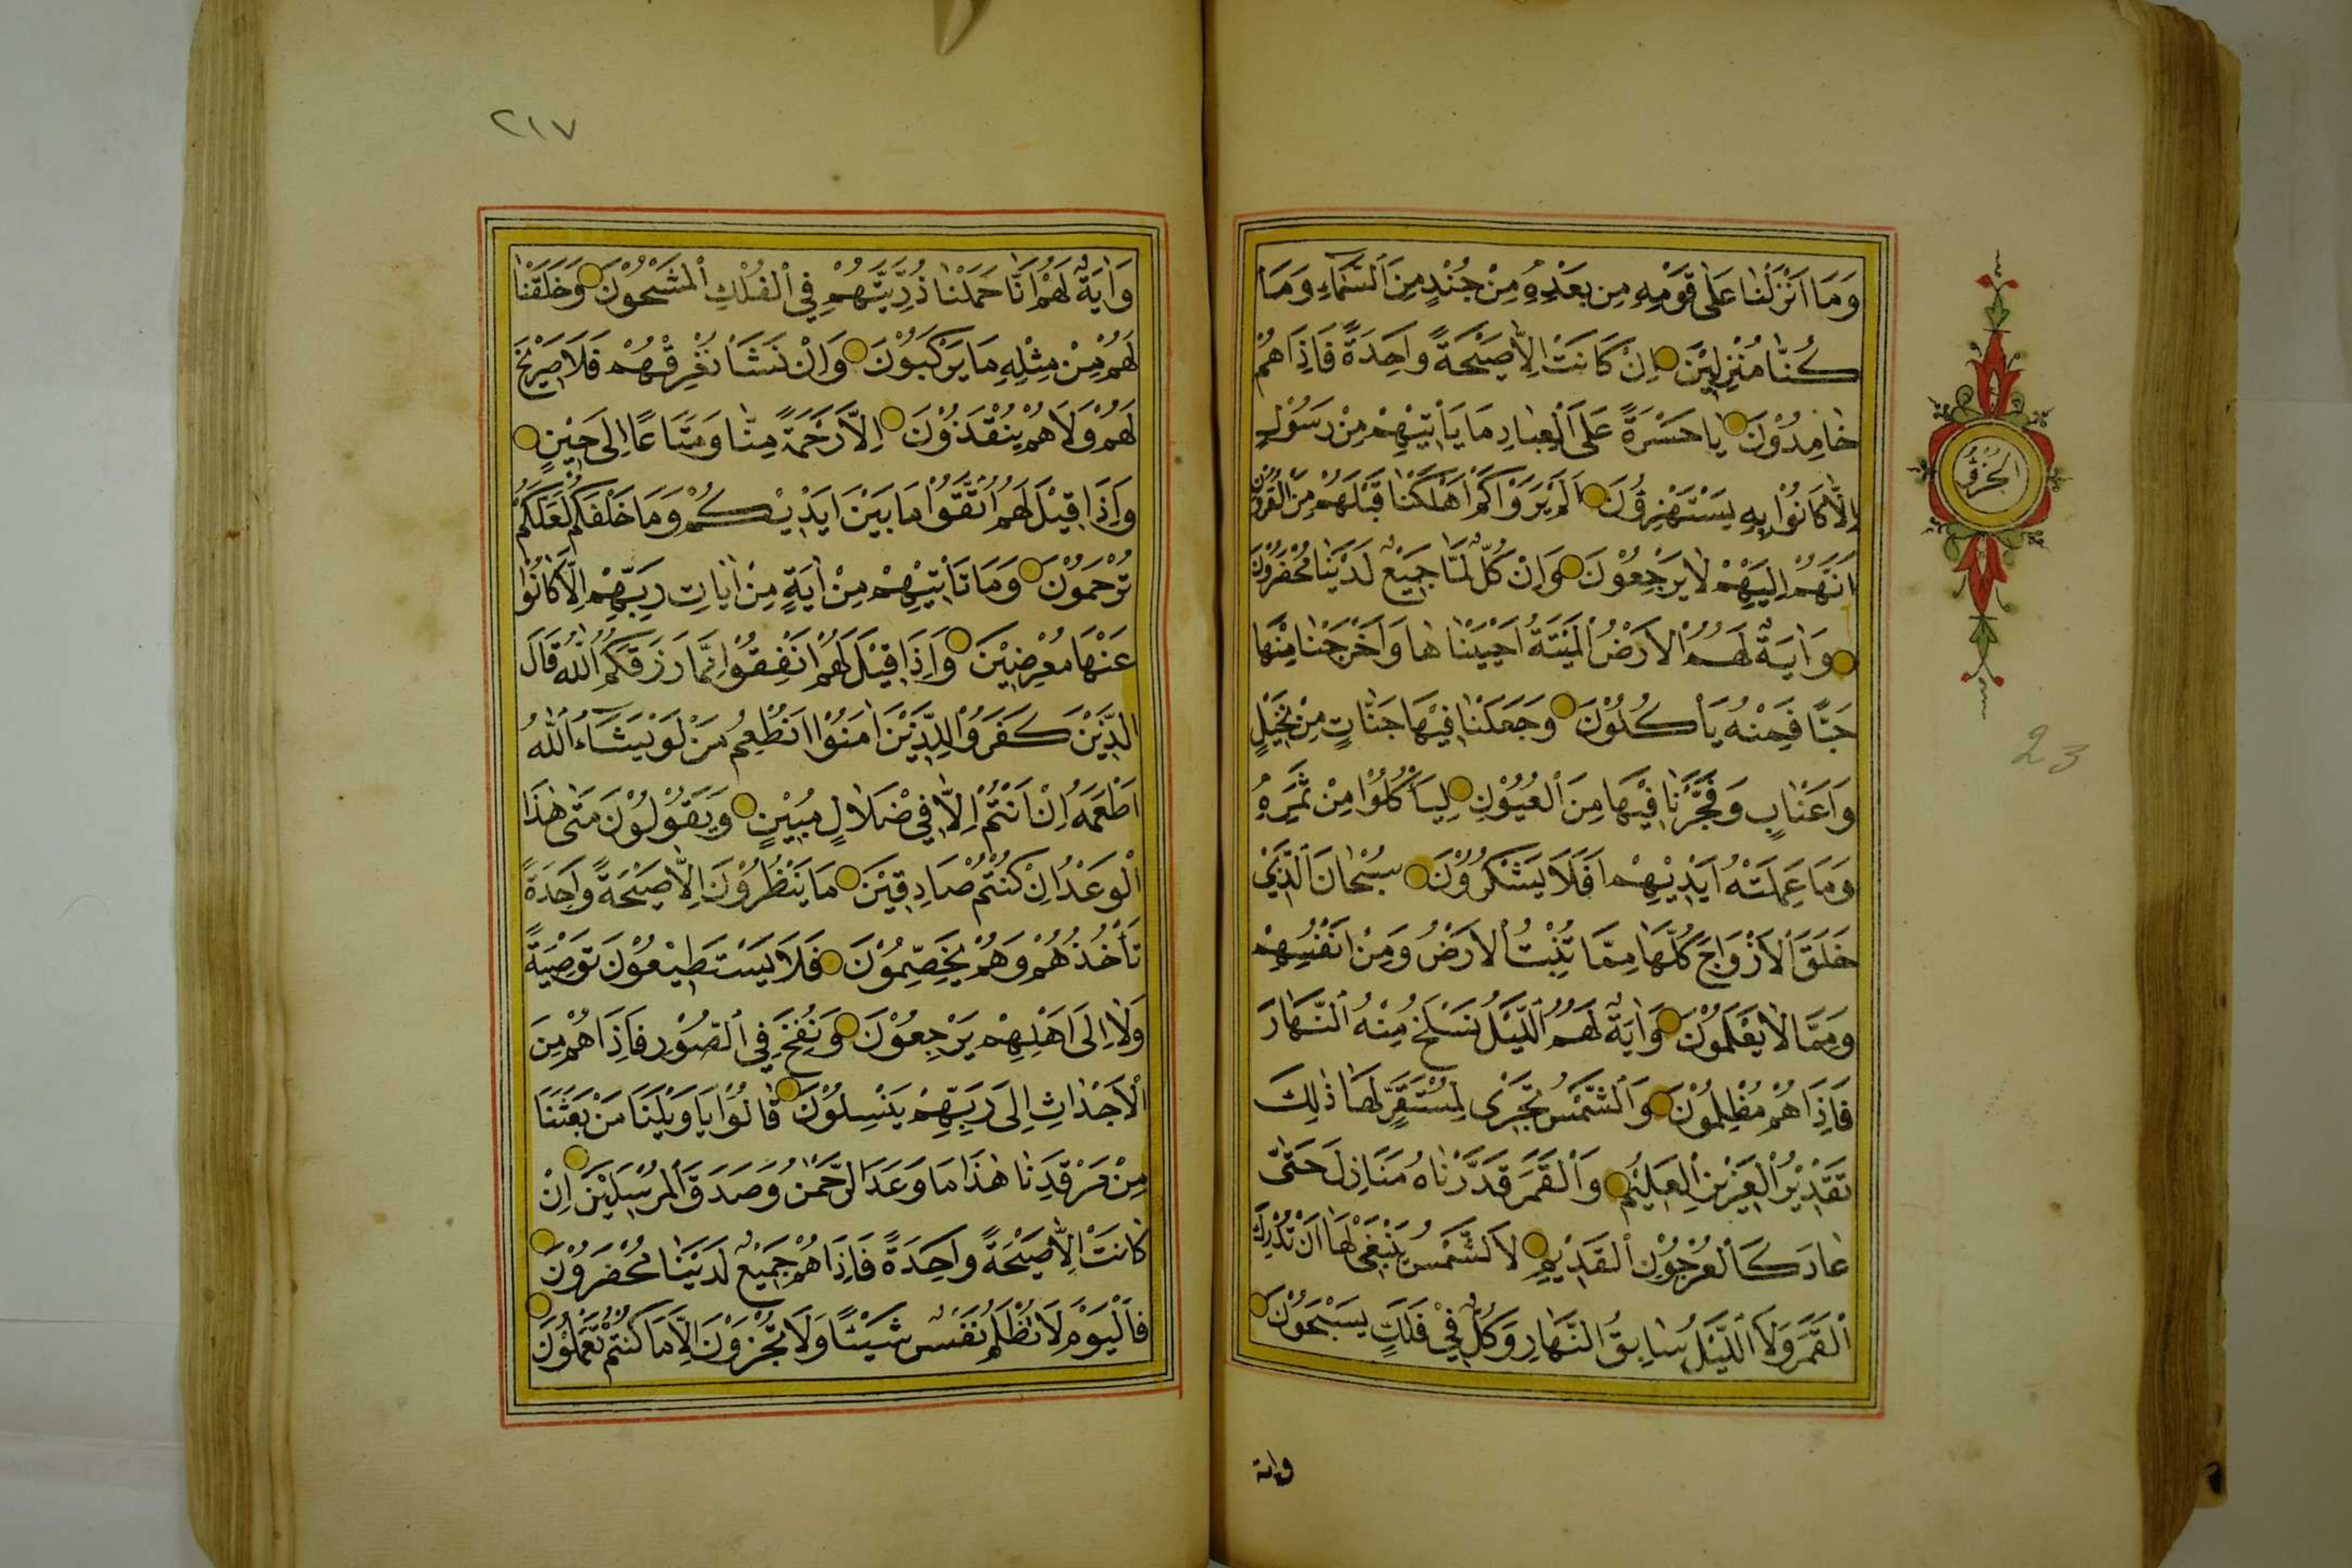 وَمَا اَنْزَلْنَا عَلٰى قَوْمِهٖ مِنْ بَعْدِهٖ مِنْ جُنْدٍ مِنَ السَّمَاءِ وَمَا
كُنَّا مُنْزِلِيْنَ اِنْ كَانَتْ اِلَّا صَيْحَةً وَاحِدَةً فَاِذَا هُمْ
خَامِدُوْنَ يَا حَسْرَةً عَلَى الْعِبَادِ مَا يَأْتِيْهِمْ مِنْ رَسُوْلٍ
اِلَّا كَانُوْا بِهٖ يَسْتَهْزِؤُنَ اَلَمْ يَرَوْا كَمْ اَهْلَكْنَا قَبْلَهُمْ مِنَ الْقُرُوْنِ
اَنَّهُمْ اِلَيْهِمْ لَا يَرْجِعُوْنَ وَاِنْ كُلٌّ لَمَّا جَمِيْعٌ لَدَيْنَا مُحْضَرُوْنَ
وَاٰيَةٌ لَهُمُ الْاَرْضُ الْمَيْتَةُ اَحْيَيْنَاهَا وَاَخْرَجْنَا مِنْهَا
حَبًّا فَمِنْهُ يَأْكُلُوْنَ وَجَعَلْنَا فِيْهَا جَنَّاتٍ مِنْ نَخِيْلٍ
وَاَعْنَابٍ وَفَجَّرْنَا فِيْهَا مِنَ الْعُيُوْنِ لِيَأْكُلُوْا مِنْ ثَمَرِهٖ
وَمَا عَمِلَتْهُ اَيْدِيْهِمْ اَفَلَا يَشْكُرُوْنَ سُبْحَانَ الَّذِيْ
خَلَقَ الْاَزْوَاجَ كُلَّهَا مِمَّا تُنْبِتُ الْاَرْضُ وَمِنْ اَنْفُسِهِمْ
وَمِمَّا لَا يَعْلَمُوْنَ وَاٰيَةٌ لَهُمُ الَّيْلُ نَسْلَخُ مِنْهُ النَّهَارَ
فَاِذَا هُمْ مُظْلِمُوْنَ وَالشَّمْسُ تَجْرِيْ لِمُسْتَقَرٍّ لَهَا ذٰلِكَ
تَقْدِيْرُ الْعَزِيْزِ الْعَلِيْمِ وَالْقَمَرَ قَدَّرْنَاهُ مَنَازِلَ حَتّٰى
عَادَ كَالْعُرْجُوْنِ الْقَدِيْمِ لَا الشَّمْسُ يَنْبَغِيْ لَهَا اَنْ تُدْرِكَ
الْقَمَرَ وَلَا الَّيْلُ سَابِقُ النَّهَارِ وَكُلٌّ فِيْ فَلَكٍ يَسْبَحُوْنَ
واية
الجزؤ
23
٢١٧
وَاٰيَةٌ لَهُمْ اَنَّا حَمَلْنَا ذُرِّيَّتَهُمْ فِي الْفُلْكِ الْمَشْحُوْنَ وَخَلَقْنَا
لَهُمْ مِنْ مِثْلِهٖ مَا يَرْكَبُوْنَ وَاِنْ نَشَأْ نُغْرِقْهُمْ فَلَا صَرِيْخَ
لَهُمْ وَلَا هُمْ يُنْقَذُوْنَ اِلَّا رَحْمَةً مِنَّا وَمَتَاعًا اِلٰى حِيْنٍ
وَاِذَا قِيْلَ لَهُمُ اتَّقُوْا مَا بَيْنَ اَيْدِيْكُمْ وَمَا خَلْفَكُمْ لَعَلَّكُمْ
تُرْحَمُوْنَ وَمَا تَأْتِيْهِمْ مِنْ اٰيَةٍ مِنْ اٰيَاتِ رَبِّهِمْ اِلَّا كَانُوْا
عَنْهَا مُعْرِضِيْنَ وَاِذَا قِيْلَ لَهُمْ اَنْفِقُوْا مِمَّا رَزَقَكُمُ اللّٰهُ قَالَ
الَّذِيْنَ كَفَرُوْا لِلَّذِيْنَ اٰمَنُوْا اَنُطْعِمُ مَنْ لَوْ يَشَاءُ اللّٰهُ
اَطْعَمَهُ اِنْ اَنْتُمْ اِلَّا فِيْ ضَلَالٍ مُبِيْنٍ وَيَقُوْلُوْنَ مَتٰى هٰذَا
الْوَعْدُ اِنْ كُنْتُمْ صَادِقِيْنَ مَا يَنْظُرُوْنَ اِلَّا صَيْحَةً وَاحِدَةً
تَأْخُذُهُمْ وَهُمْ يَخِصِّمُوْنَ فَلَا يَسْتَطِيْعُوْنَ تَوْصِيَةً
وَلَا اِلٰى اَهْلِهِمْ يَرْجِعُوْنَ وَنُفِخَ فِي الصُّوْرِ فَاِذَا هُمْ مِنَ
الْاَجْدَاثِ اِلٰى رَبِّهِمْ يَنْسِلُوْنَ قَالُوْا يَا وَيْلَنَا مَنْ بَعَثَنَا
مِنْ مَرْقَدِنَا هٰذَا مَا وَعَدَ الرَّحْمٰنُ وَصَدَقَ الْمُرْسَلِيْنَ اِنْ
كَانَتْ اِلَّا صَيْحَةً وَاحِدَةً فَاِذَا هُمْ جَمِيْعٌ لَدَيْنَا مُحْضَرُوْنَ
فَالْيَوْمَ لَا تُظْلَمُ نَفْسٌ شَيْئًا وَلَا تُجْزَوْنَ اِلَّا مَا كُنْتُمْ تَعْمَلُوْنَ